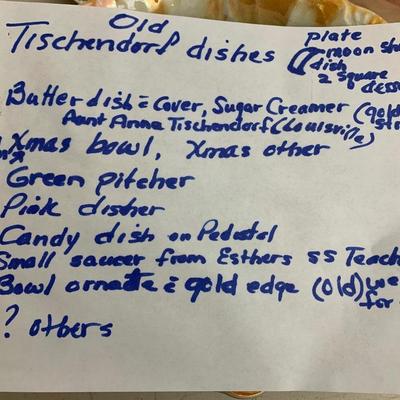 Old
Tischendorf dishes
plate
moon sh
dish
2 square
desse
Butter dish c̄ cover, Sugar Creamer (gold
Aunt Anna Tischendorf (Louisville) str
Xmas bowl, Xmas other
Green pitcher
Pink disher
Candy dish on Pedestal
Small saucer from Esthers SS Teach
Bowl ornate c̄ gold edge (old) we
for
? others